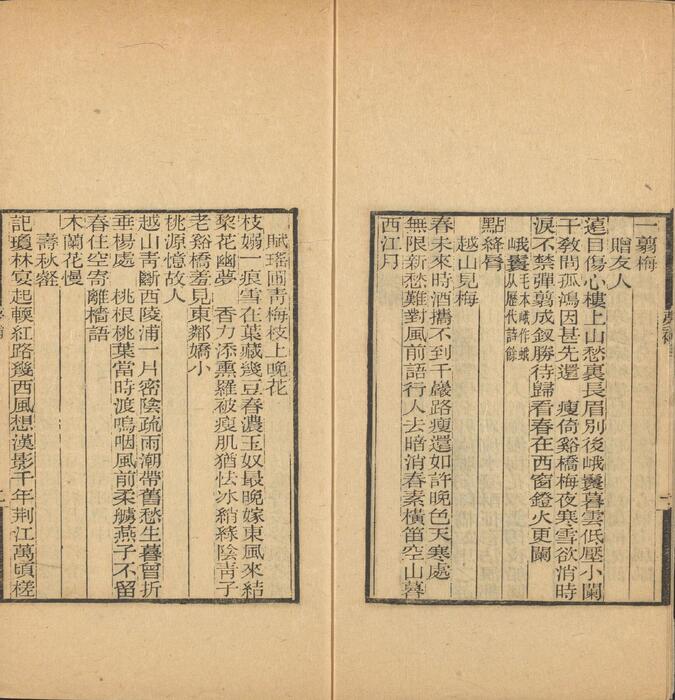 一翦梅
贈友人
遠目傷心樓上山愁裏長眉別後峨鬟暮雲低壓小闌
干教問孤鴻因甚先還　瘦倚谿橋梅夜寒雪欲消時
淚不禁彈翦成釵勝待歸看春在西窗鐙火更闌
峨鬟毛本峨作蛾
從歷代詩餘
點絳脣
越山見梅
春未來時酒攜不到千巖路瘦還如許晚色天寒處
無限新愁難對風前語行人去暗消春素橫笛空山暮
西江月
賦瑤圃青梅枝上晚花
枝嫋一痕雪在葉藏幾豆春濃玉奴最晚嫁東風來結
棃花幽夢　香力添熏羅被瘦肌猶怯冰綃綠陰青子
老谿橋羞見東鄰嬌小
桃源憶故人
越山青斷西陵浦一片密陰疏雨潮帶舊愁生暮曾折
垂楊處　桃根桃葉當時渡嗚咽風前柔艣燕子不留
春住空寄離檣語
木蘭花慢
壽秋壑
記瓊林宴起輭紅路幾西風想漢影千年荆江萬頃槎